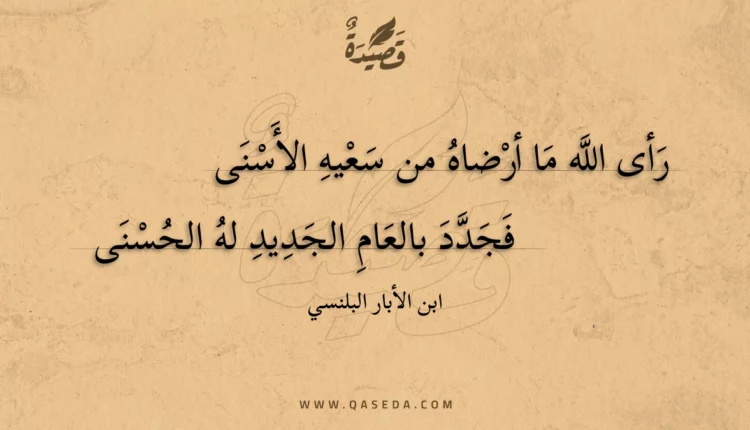 قَصِيْدَةٌ
رَأى اللَّه مَا أرْضاهُ من سَعْيهِ الأَسْنَى
فَجَدَّدَ بالعَامِ الجَدِيدِ لهُ الحُسْنَى
ابن الأبار البلنسي
WWW.QASEDA.COM